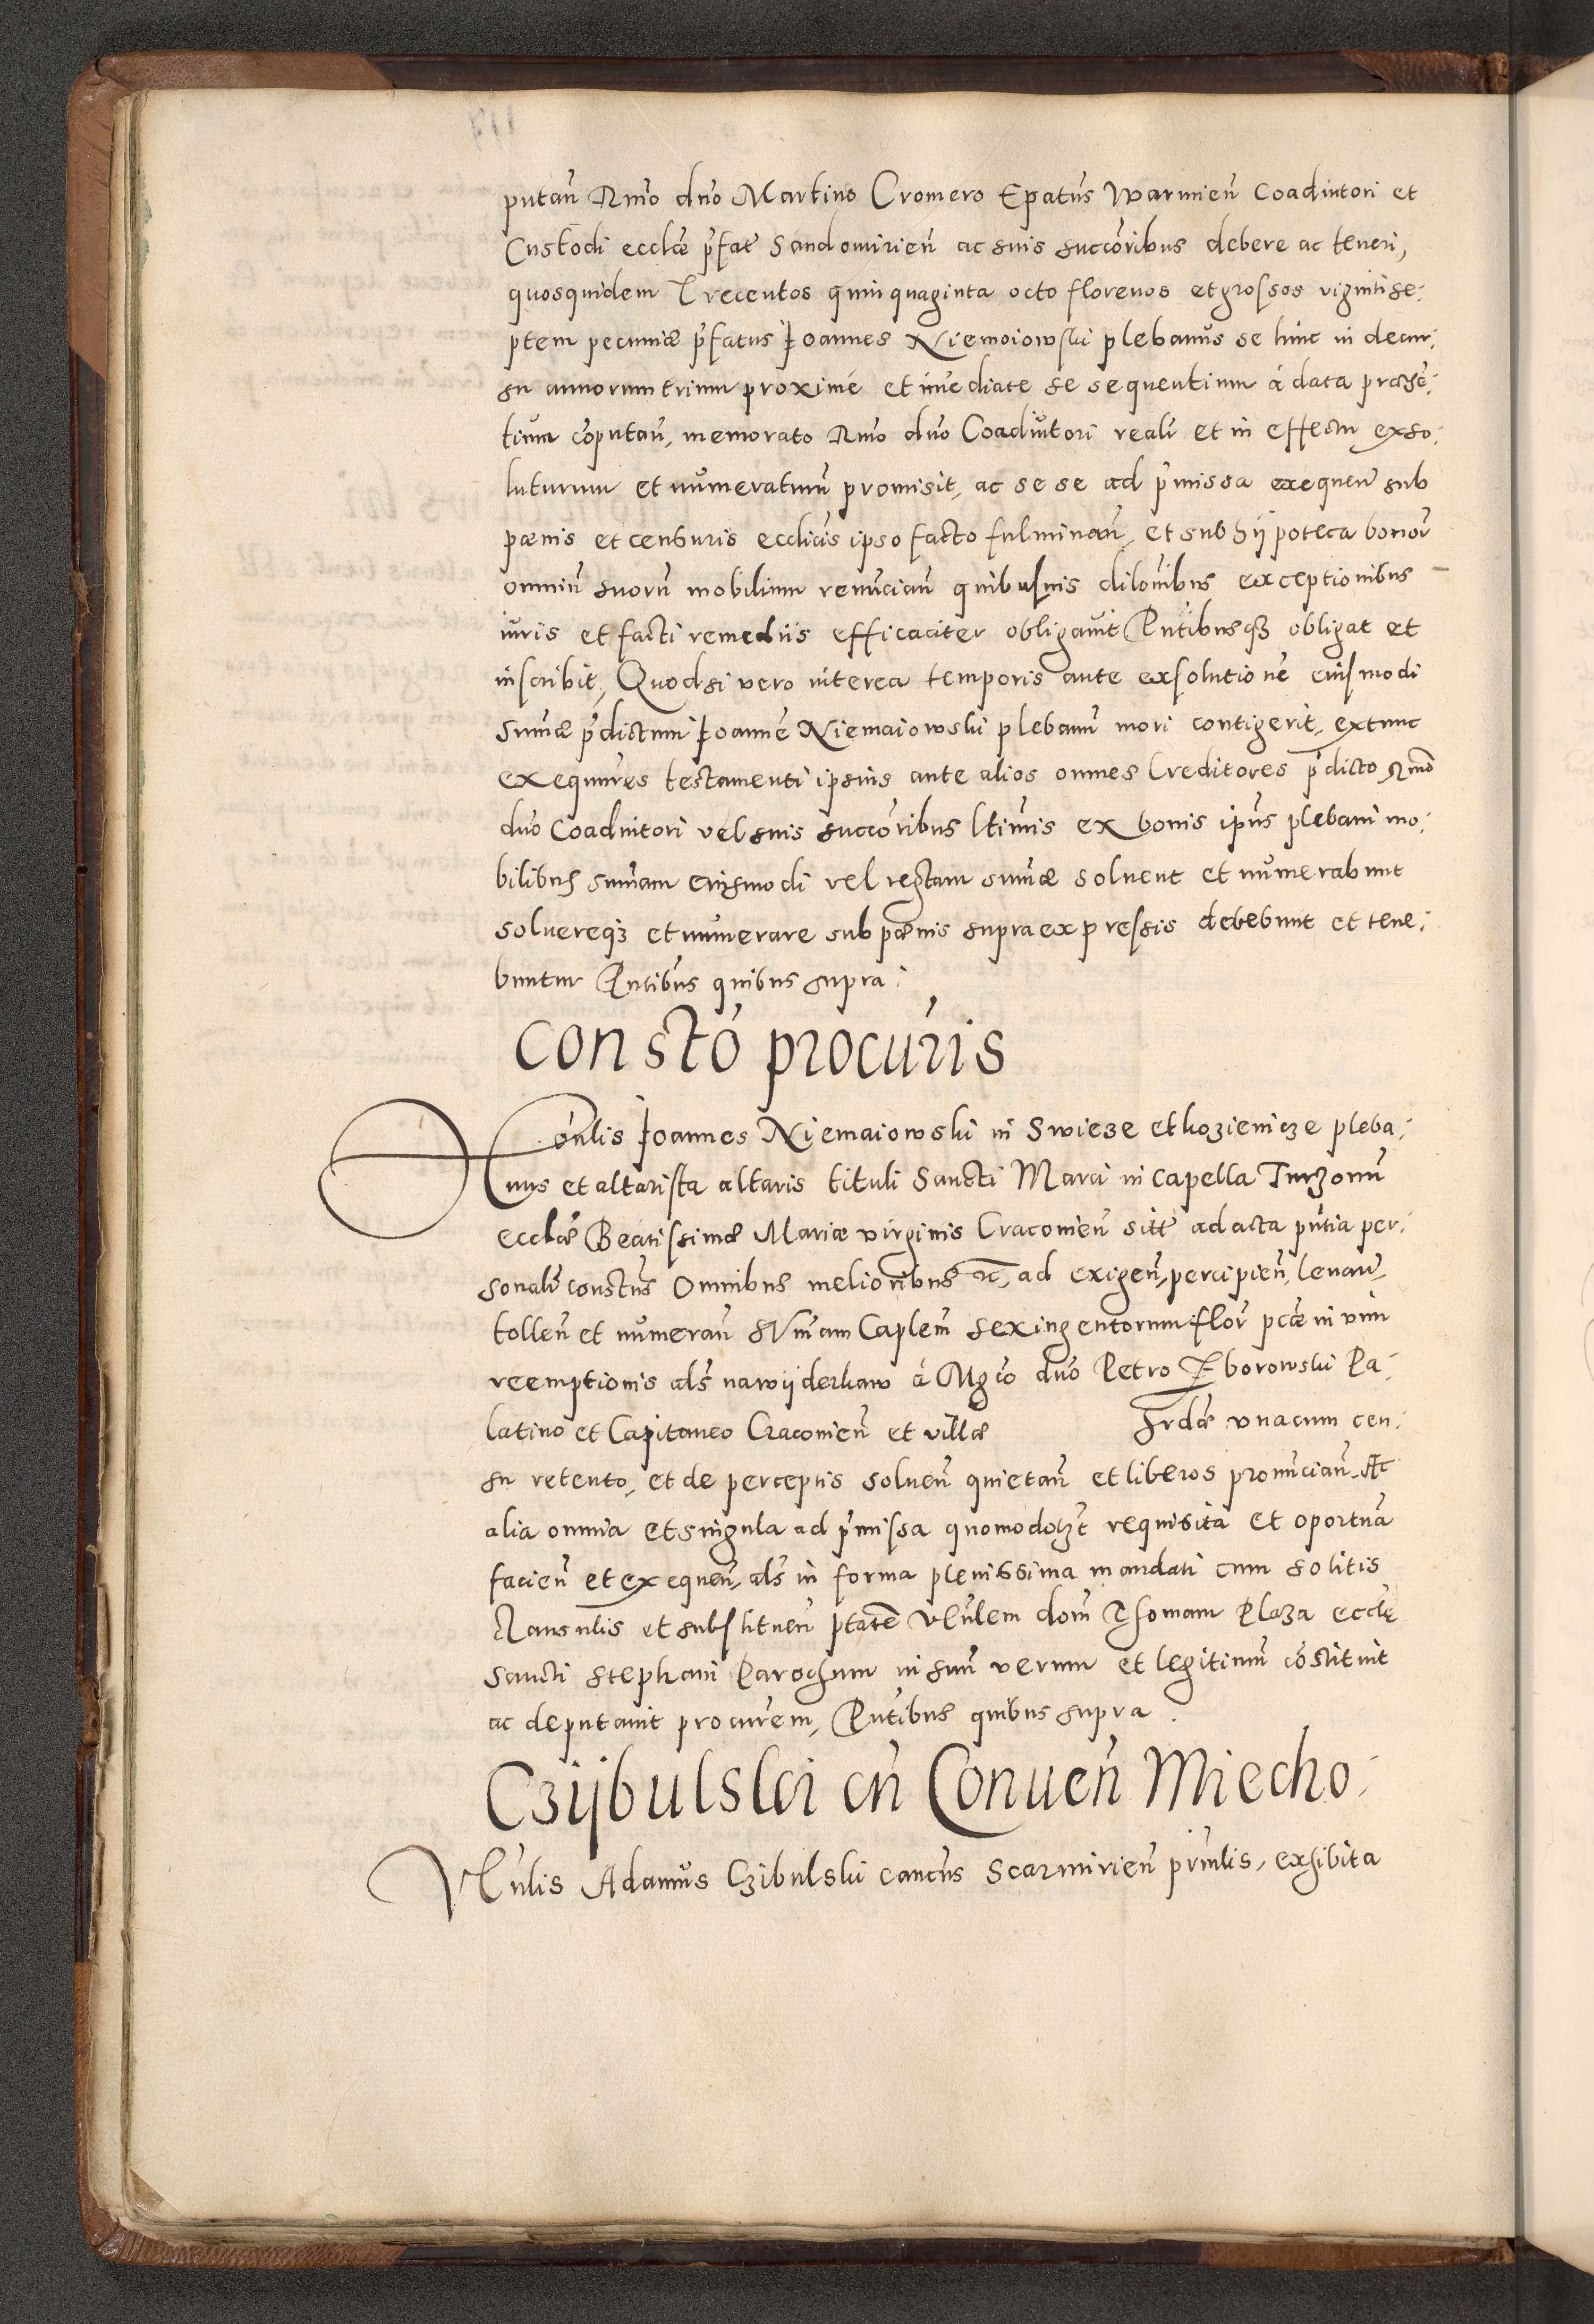 putań Rmo dno Martino Cromero Epatus Warmień Coadiutori et
Custodi ecclæ p̃fat Sandomirień ac suis succorib̃us debere ac teneri,
quosquidem Trecentos quinquaginta octo florenos et grossos viginti se:
ptem pecuniæ p̃fatus Joannes Niemoiowski plebanus se hinc in decur:
su annorum trium proximé et im̃ediate se sequentium á data præsẽ:
tium cõputań, memorato Rmo dno Coadiutori realr et in effectu exso:
luturum et numeraturũ promisit, ac se se ad p̃missa exequeń sub
pœnis et censuris eccliċis ipso facto fulminań, et sub hÿpoteca bonor
omniũ suorũ mobilium renũciań quibusuis dilonibus exceptionibus
iuris et facti remediis efficaciter obligauit Pñtibusq3 obligat et
inscribit, Quodsi vero interea temporis ante exsolutionẽ eiusmodi
Sum̃æ p̃dictum Joannẽ Niemaiowski plebanũ mori contigerit, extunc
exequut̃res testamenti ipsius ante alios omnes Creditores p̃dicto Rmo
dno Coadiutori vel suis succorib̃us ltimis ex bonis ip̃us plebani mo:
bilibus sum̃am eiusmodi vel restam sum̃æ soluent et numerabunt
soluereq3 et numerare sub pœnis supra expressis debebunt et tene:
buntur Pñtibus quibus supra:
Constó procuris
Honlis Joannes Niemaiowski in Swieze et kozienicze pleba:
nus et altarista altaris tituli Sancti Marci in Capella Turzonũ
ecclæ Beatissimæ Mariæ virginis Cracovień sitæ ad acta pñtia per:
sonalr constus Omnibus melioribus rc, ad exigeń, percipień, leuań,
tolleń et numerań sum̃am Caplem sexingentorum flor pcæ in vim
reemptionis als nawÿderkaw á Mgco dno Petro Zborowski Pa:
latino et Capitaneo Cracovień et villæ Jrdæ vnacum cen:
su retento, et de perceptis solueń quietań et liberos pronũciań, Ac
alia omnia et singula ad p̃missa quomodolzt requisita et oportuna
facień et exequeń, als in forma plenissima mandati cum solitis
Clausulis et substitueń ptatẽ Vlulem dom̃ Thomam Plaza eccle
Sancti Stephani Parochum in suũ verum et legitimũ cõstituit
ac deputauit procurem, Pñtibus quibus supra.
Czÿbulski cũ Conueń Miecho:
Vlulis Adamus Czibulski cancus Scarmirień prñlis, exhibita